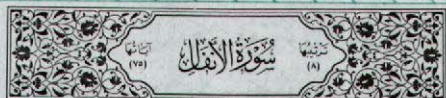 ترتيبها (٨) سُورَةُ الأَنفَالِ آياتها (٧٥)